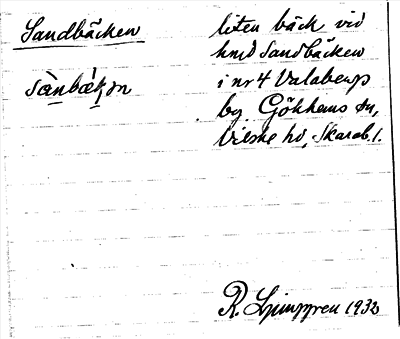 Sandbäcken
sànbæ̀kən
liten bäck vid
hmd Sandbäcken
i nr 4 Valabergs
by. Gökhems sn,
Vilske hd, Skarab. l.
R. Ljunggren 1932